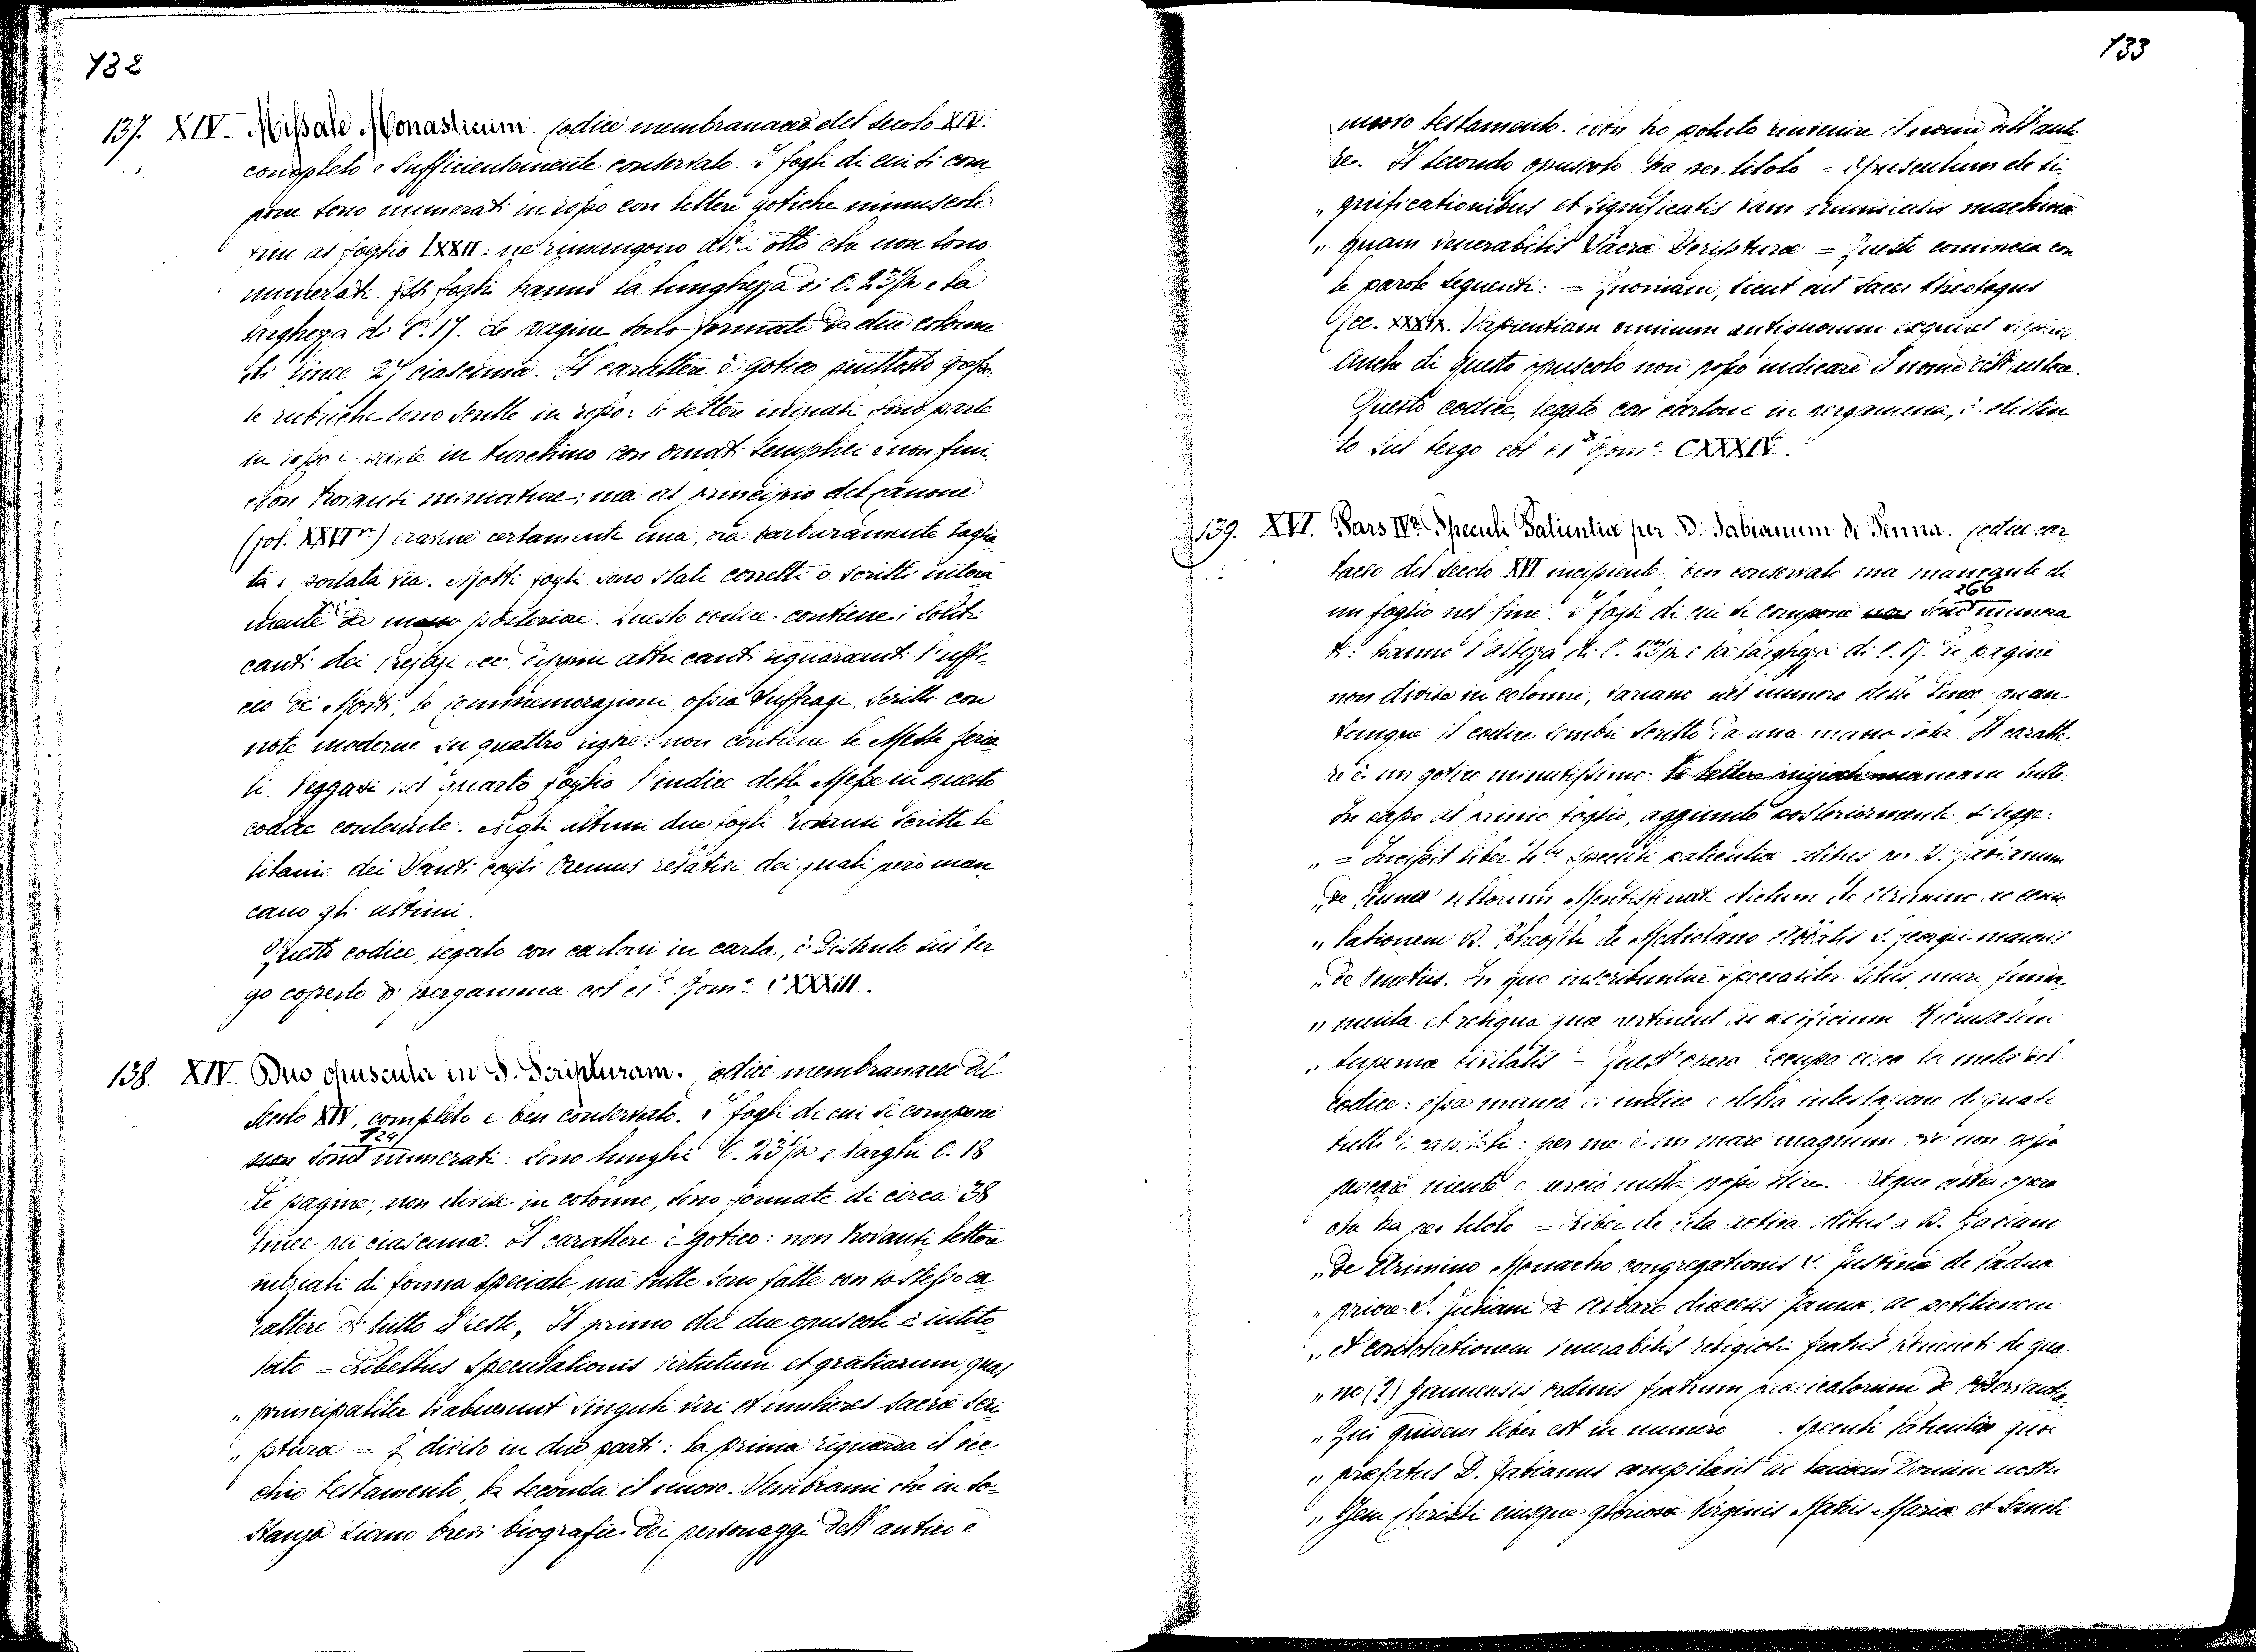 132
137. XIV. Missale Monasticum. Codice membranaceo del secolo XIV.
completo e sufficientemente conservato. I fogli di cui si com
pone sono numerati in rosso con lettere gotiche minuscole
fino al foglio LXXII: ne rimangono altri otto che non sono
numerati. Essi fogli hanno la lunghezza di C. 23 1/2 e la
larghezza di C. 17. Le pagine sono formate da due colonne
di linee 27 ciascuna. Il carattere è gotico piuttosto grosso.
le rubriche sono scritte in rosso: le lettere iniziali sono parte
in rosso e parte in turchino con ornati semplici e non fini.
Non trovansi miniature; ma al principio del Canone
(fol. XXVI) eravene certamente una, ora barbaramente taglia
ta e portata via. Molti fogli sono stati corretti o scritti intera
mente da mano posteriore. Questo codice contiene i soliti
canti dei prefazi ecc. eppure altri canti riguardanti l'uffi-
cio dei Morti, le Commemorazioni, ossia Suffragi, scritti con
note moderne su quattro righe: non contiene le Messe feria
li. Veggasi nel quarto foglio l'indice delle Messe in questo
codice contenute. Negli ultimi due fogli trovansi scritte le
litanie dei Santi cogli Oremus relativi, dei quali però man
cano gli ultimi.
Questo codice, legato con cartoni in carta, è distinto sul ter
go coperto di pergamena col ci.° Rom.° CXXXIII.
138. XIV. Duo opuscula in S. Scripturam. Codice membranaceo del
secolo XIV, completo e ben conservato. I fogli di cui si compone
124
non sono numerati: sono lunghi C. 23 1/2 e larghi C. 18
Le pagine, non divise in colonne, sono formate di circa 38
linee per ciascuna. Il carattere è gotico: non trovansi lettere
iniziali di forma speciale, ma tutte sono fatte con lo stesso ca
rattere di tutto il resto. Il primo dei due opuscoli è intito
lato = Libellus speculationis virtutum et gratiarum, quas
„ principaliter habuerunt singuli viri et mulieres sacræ Scri
„ pturæ = È diviso in due parti: la prima riguarda il vec-
chio testamento, la seconda il nuovo. Sembrami che in so-
stanza siano brevi biografie dei personaggi dell'antico e
133
nuovo testamento. Non ho potuto rinvenire il nome dell'auto
re. Il secondo opuscolo ha per titolo = Opusculum de si-
„ gnificationibus et significatis tam
„ quam venerabilis Sacræ Scripturæ = Questo comincia con
le parole seguenti: = Quoniam, sicut ait Sacer theologus
Ecc. XXXIX. Sapientiam omnium antiquorum exquiret sapiens.
Anche di questo opuscolo non posso indicare il nome dell'autore.
Questo codice, legato con cartone in pergamena, è distin
to sul tergo col ci.° Rom.° CXXXIV.
139. XVI. Pars IVa Speculi Patientiæ per D. Fabianum de Penna. Codice car
taceo del secolo XVI incipiente, ben conservato ma mancante di
266
un foglio nel fine. I fogli di cui si compone non sono numera
ti: hanno l'altezza di C. 23 1/2 e la larghezza di C. 17. Le pagine
non divise in colonne, variano nel numero delle linee quan-
tunque il codice sembri scritto da una mano sola. Il caratte-
re è un gotico minutissimo: le lettere iniziali mancano tutte.
In capo al primo foglio, aggiunto posteriormente, si legge:
„ = Incipit liber speculi patientiæ editus per D. Fabianum
„ de Penna Montisferrati dictum de Arimino
„ lationem D. Theophili de Mediolano Abbatis S. Georgii maioris
„ de Venetiis. In quo inscribuntur specialiter situs, muri, funda
„ menta et reliqua quæ pertinent ad ædificium
„ supernæ civitatis = Quest'opera occupa circa la metà del
codice: essa manca di indice e della intestazione di quasi
tutti i capitoli: per me è un mare magnum ove non posso
pescare niente e perciò nulla posso dire. Segue altra opera
che ha per titolo = Liber de vita activa editus a D. Fabiano
„ de Arimino Monacho congregationis S. Justinæ de Padua
„ priore S. Juliani de Albaro diæcesis Januæ, ac petitionem
„ et consolationem venerabilis religiosi fratris de qua
„ no (?) Januensis ordinis fratrum prædicatorum de observantia.
„ Qui quidem liber est in numero . speculi patientiæ quod
„ præfatus D. Fabianus compilavit ad laudem Domini nostri
„ Jesu Christi eiusque gloriosæ Virginis Matris Mariæ et Sancti